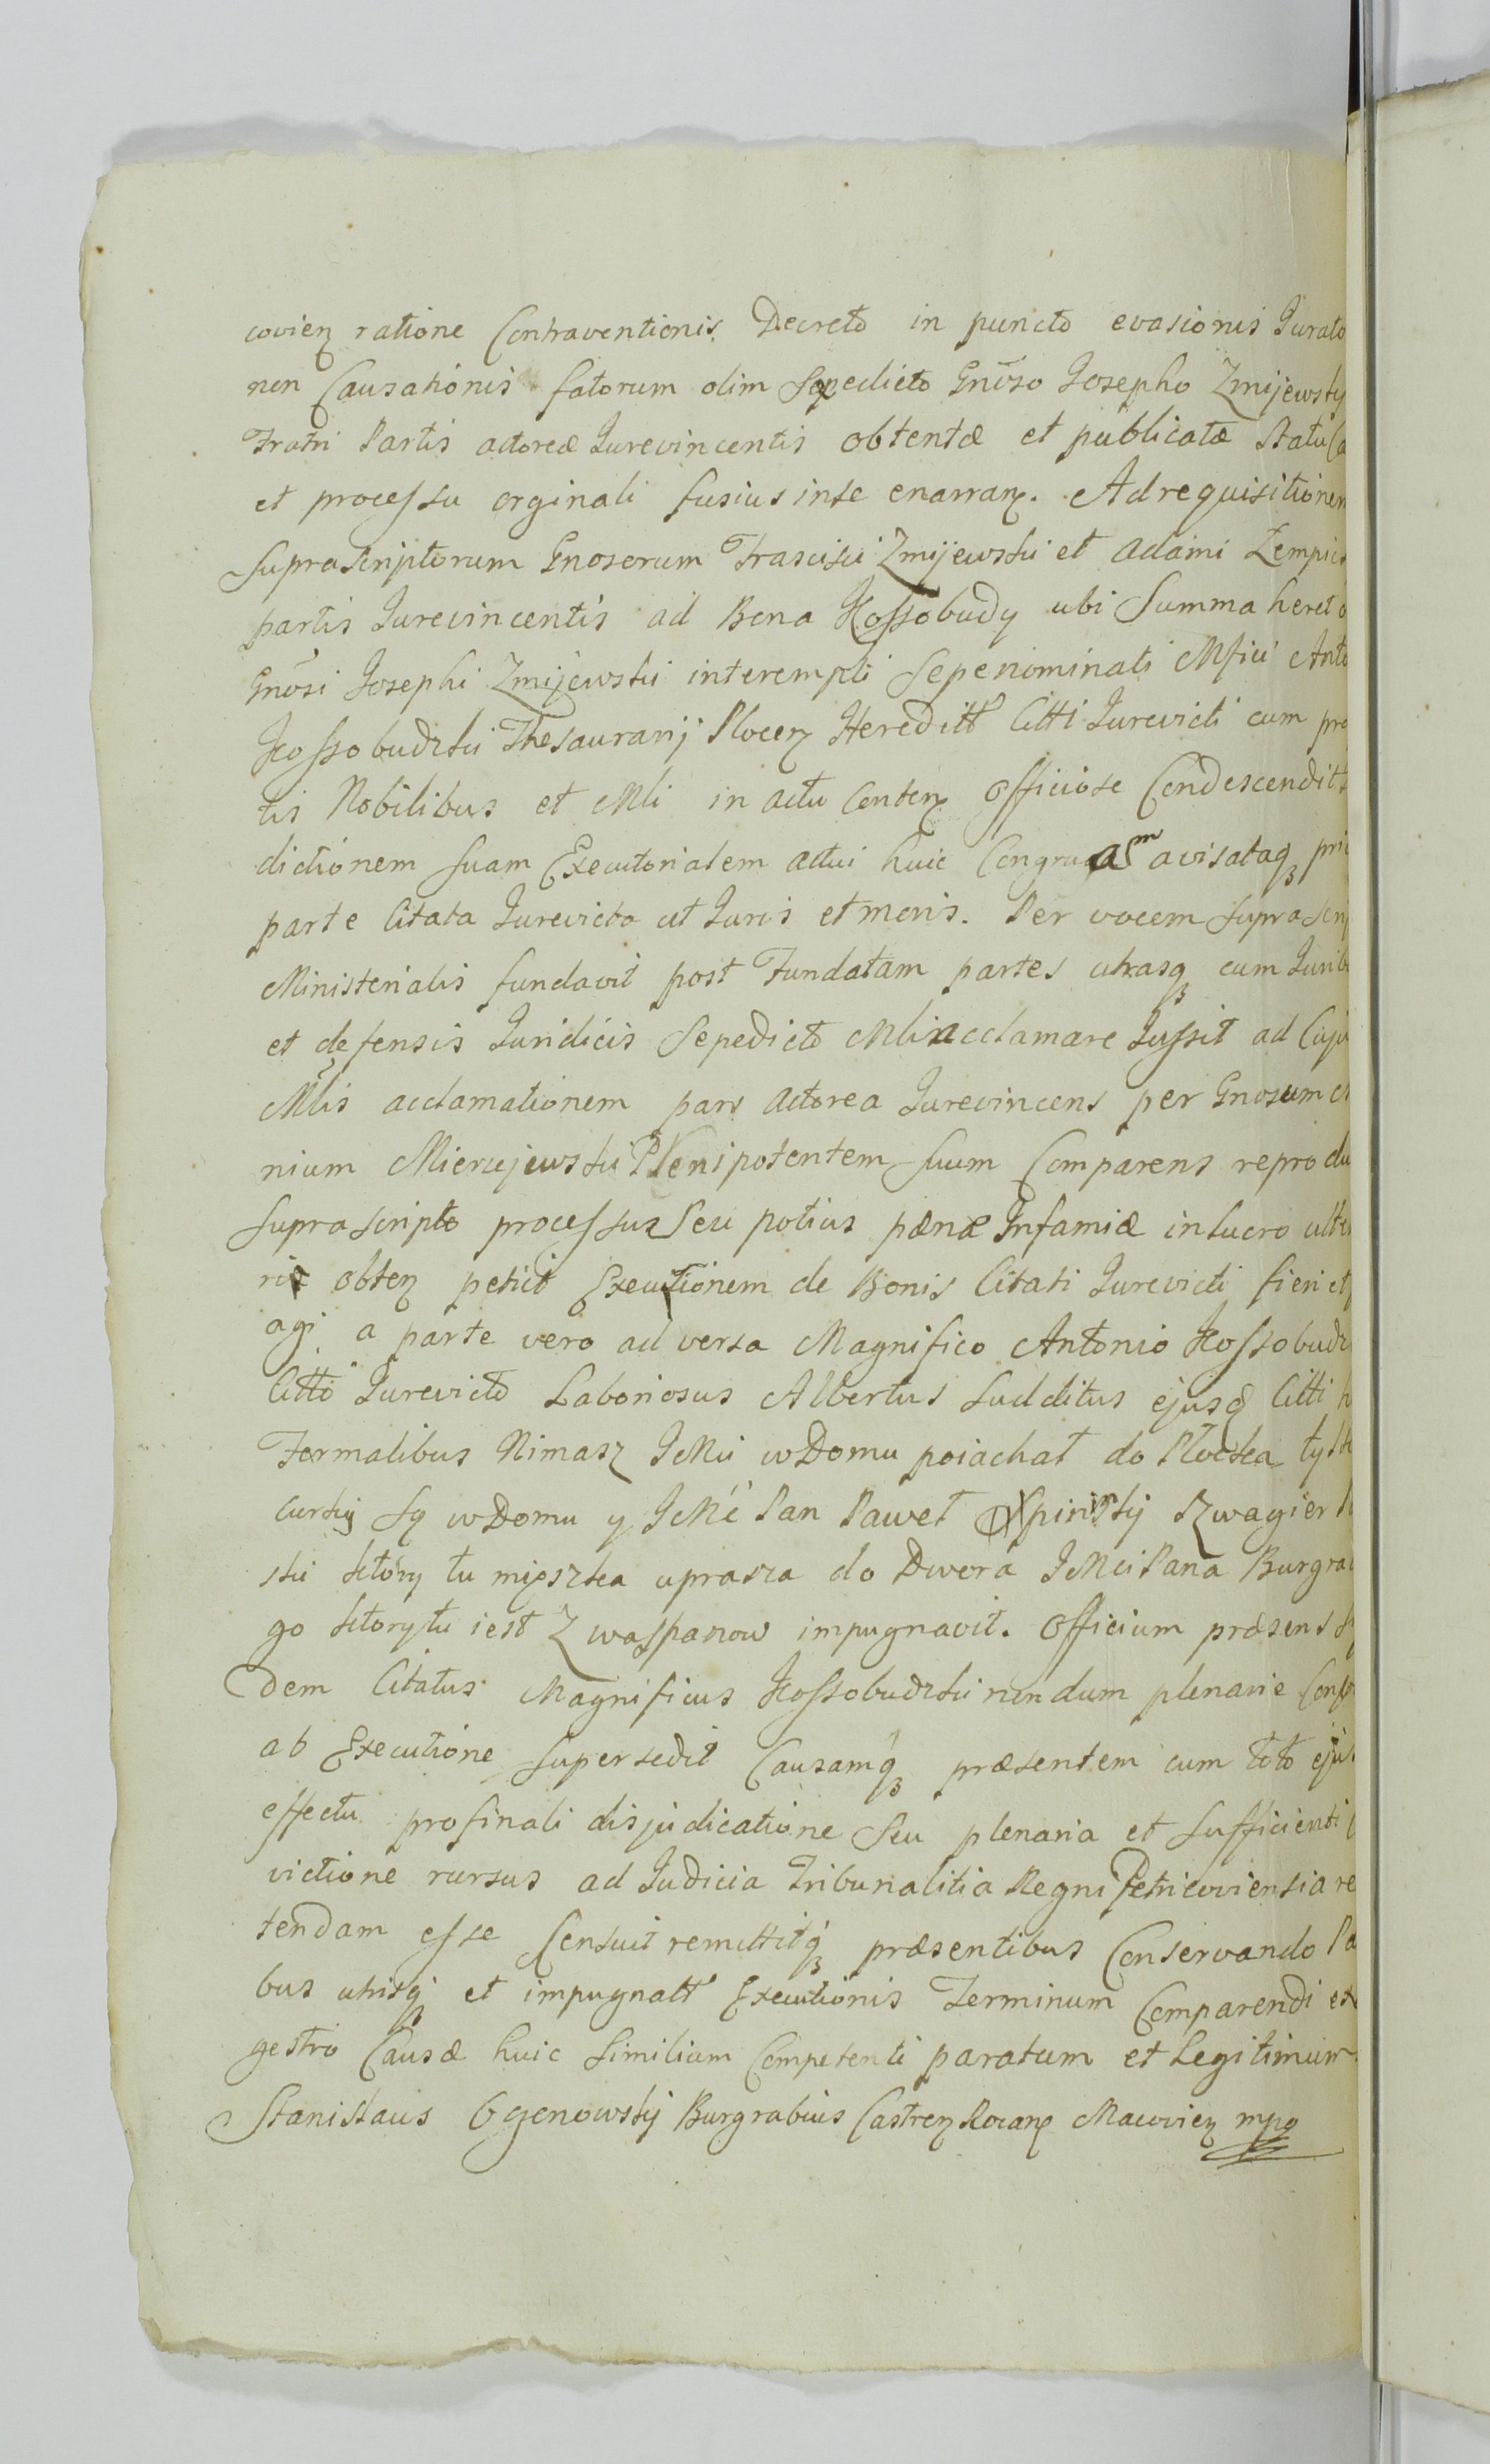 covien ratione Contraventionis Decreto in puncto evasionis Jurato
non Causationis fatorum olim Sæpedicto Gnõso Josepho Zmijewsky
Fratri Partis actoreæ Jurevincentis obtentæ et publicatæ Statu
et processu orginali fusius inse enarran. Ad requisitionem
Suprascriptorum Gnosorum Frascisci Zmijewski et Adami Zempic
partis Jurevincentis ad Bona Kossobudy ubi Summa
Gnõsi Josephi Zmijewski interempti Sepenominati Mfici Anto
Kossobudzki Thesaurarij Plocen Hereditt Citti Jurevicti cum pro
tis Nobilibus et Mli in actu conten officiose Condescendit
dictionem Suam Executorialem actui huic avisataq pri
parte Citata Jurevicta ut Juris et moris. Per vocem Suprascrip
Ministerialis fundavit post Fundatam partes utrasq cum Jurib
et defensis Juridicis Sepedicto Mli acclamare Jussit ad Cuju
Mlis acclamationem pars Actorea Jurevincens per Gnosum
nium Mierzejewski Plenipotentem Suum Comparens reprodu
Suprascripto processus Seu potius pænæ Infamiæ in lucro ulte
riæ obten petiit Executionem de Bonis Citati Jurevicti fieri et
agi a parte vero adversa Magnifico Antonio Kossobudz
Citto Jurevicto Laboriosus Albertus Subditus ejusq Citti h
Formalibus Nimasz JcMci w Domu poiachał do Płocka tylk
curky Są w Domu y JcMć Pan Paweł Szwagier
ski ktory tu mięszka uprasza do Dwora JcMci Pana Burgrab
go ktory tu iest z waspanow impugnavit. Officium præsens
dem Citatus Magnificus Kossobudzki nondum plenarie
ab Executione Supersedit Causamq præsentem cum toto ejus
effectu profinali disjudicatione Seu plenaria et Sufficienti
victione rursus ad Judicia Tribunalitia Regni Petricoviensia re
tendam esse Censuit remittitq præsentibus Conservando Pa
bus utrisq et impugnatt Executionis Terminum Comparendi ex
gestro Causæ huic Similium Competenti paratum et Legitimum
Stanislaus Ogenowskij Burgrabius Castren Rocian Macovien mpo